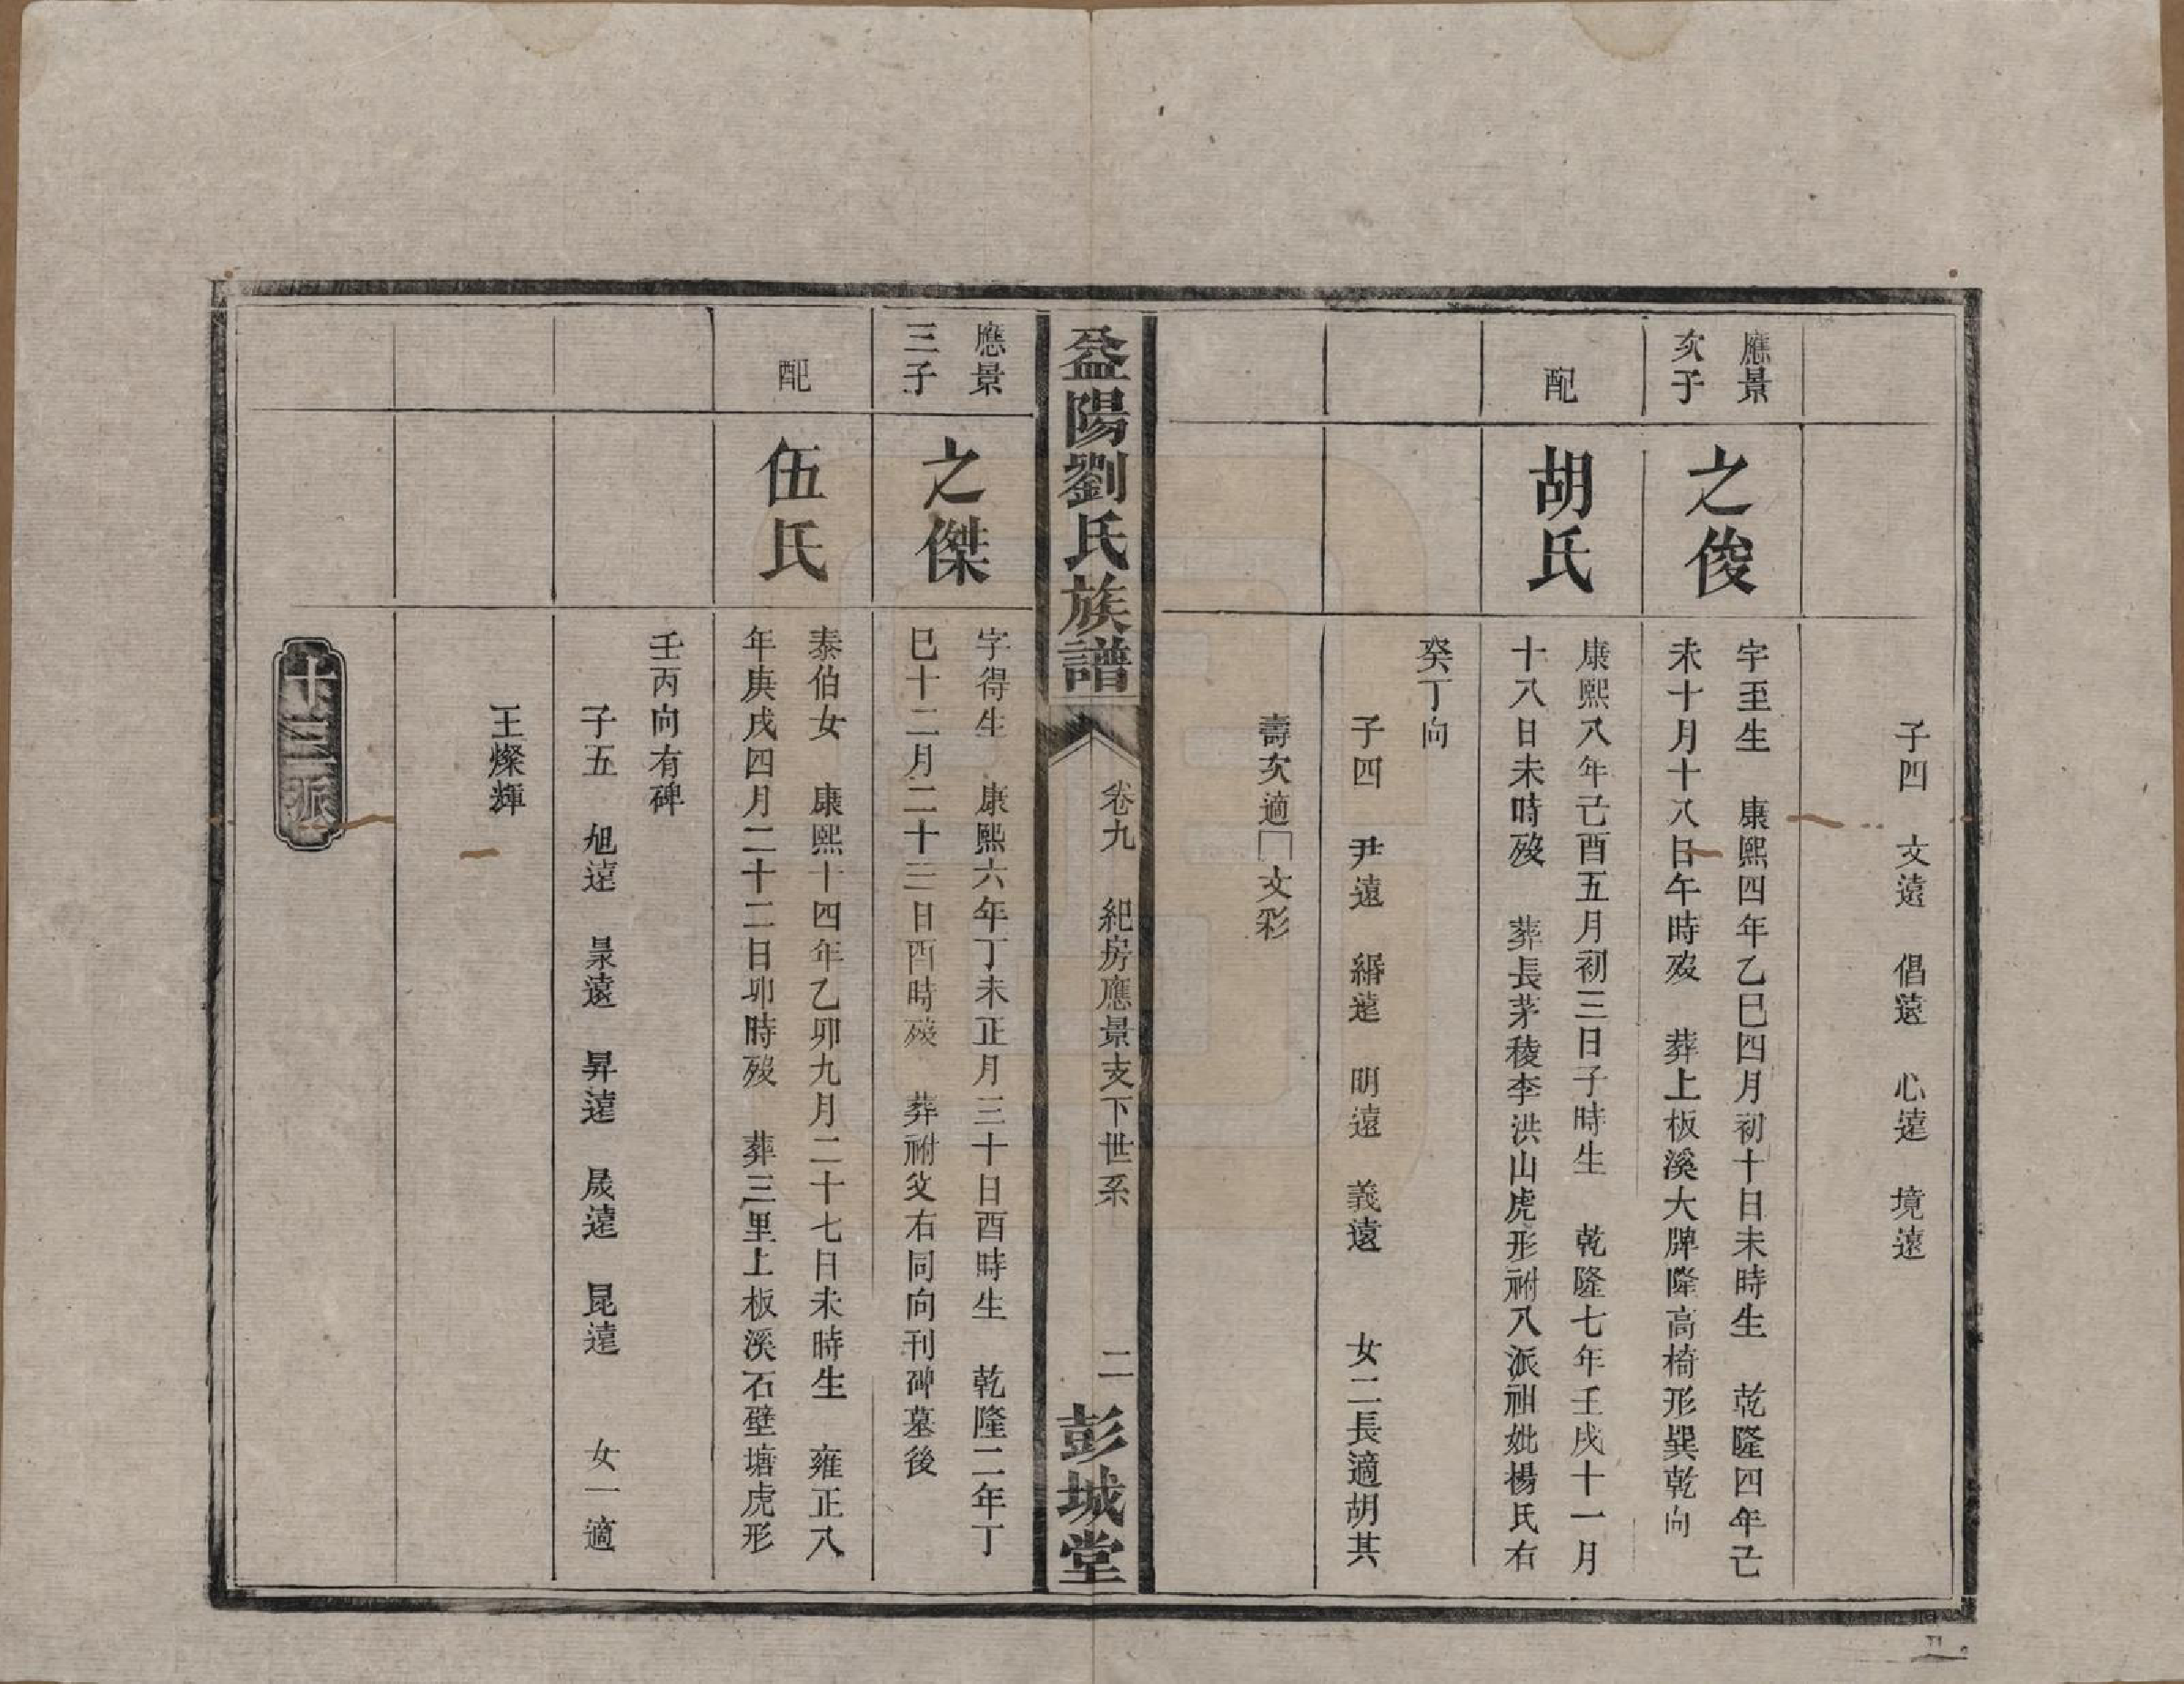 子四　文遠　倡遠　心遠　境遠
應景
次子
之俊
字至生　康熙四年乙巳四月初十日未時生　乾隆四年己
未十月十八日午時歿　葬上板溪大牌隆高椅形巽乾向
配
胡氏
康熙八年己酉五月初三日子時生　乾隆七年壬戌十一月
十八日未時歿　葬長茅稜李洪山虎形祔八派祖妣楊氏右
癸丁向
子四　尹遠　緡遠　明遠　義遠　女二長適胡其
壽次適□文彩
益陽劉氏族譜
卷九　紀房應景支下世系　二
彭城堂
應景
三子
之傑
字得生　康熙六年丁未正月三十日酉時生　乾隆二年丁
巳十二月二十三日酉時歿　葬祔父右同向刊碑墓後
配
伍氏
泰伯女　康熙十四年乙卯九月二十七日未時生　雍正八
年庚戌四月二十二日卯時歿　葬三里上板溪石壁塘虎形
壬丙向有碑
子五　旭遠　杲遠　昇遠　晟遠　昆遠　女一適
王燦輝
十三派